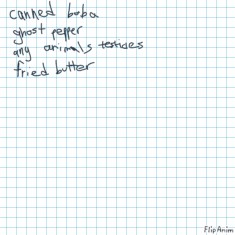 canned boba
ghost pepper
any animals testicles
fried butter
FlipAnim